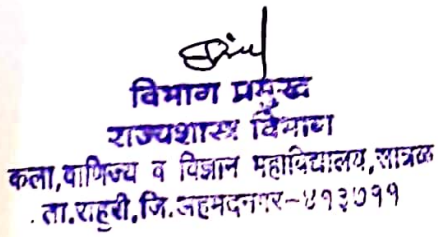 विभाग प्रमुख
राज्यशास्त्र विभाग
कला,वाणिज्य व विज्ञान महाविद्यालय,सात्रळ
ता.राहुरी,जि.अहमदनगर-४१३७११